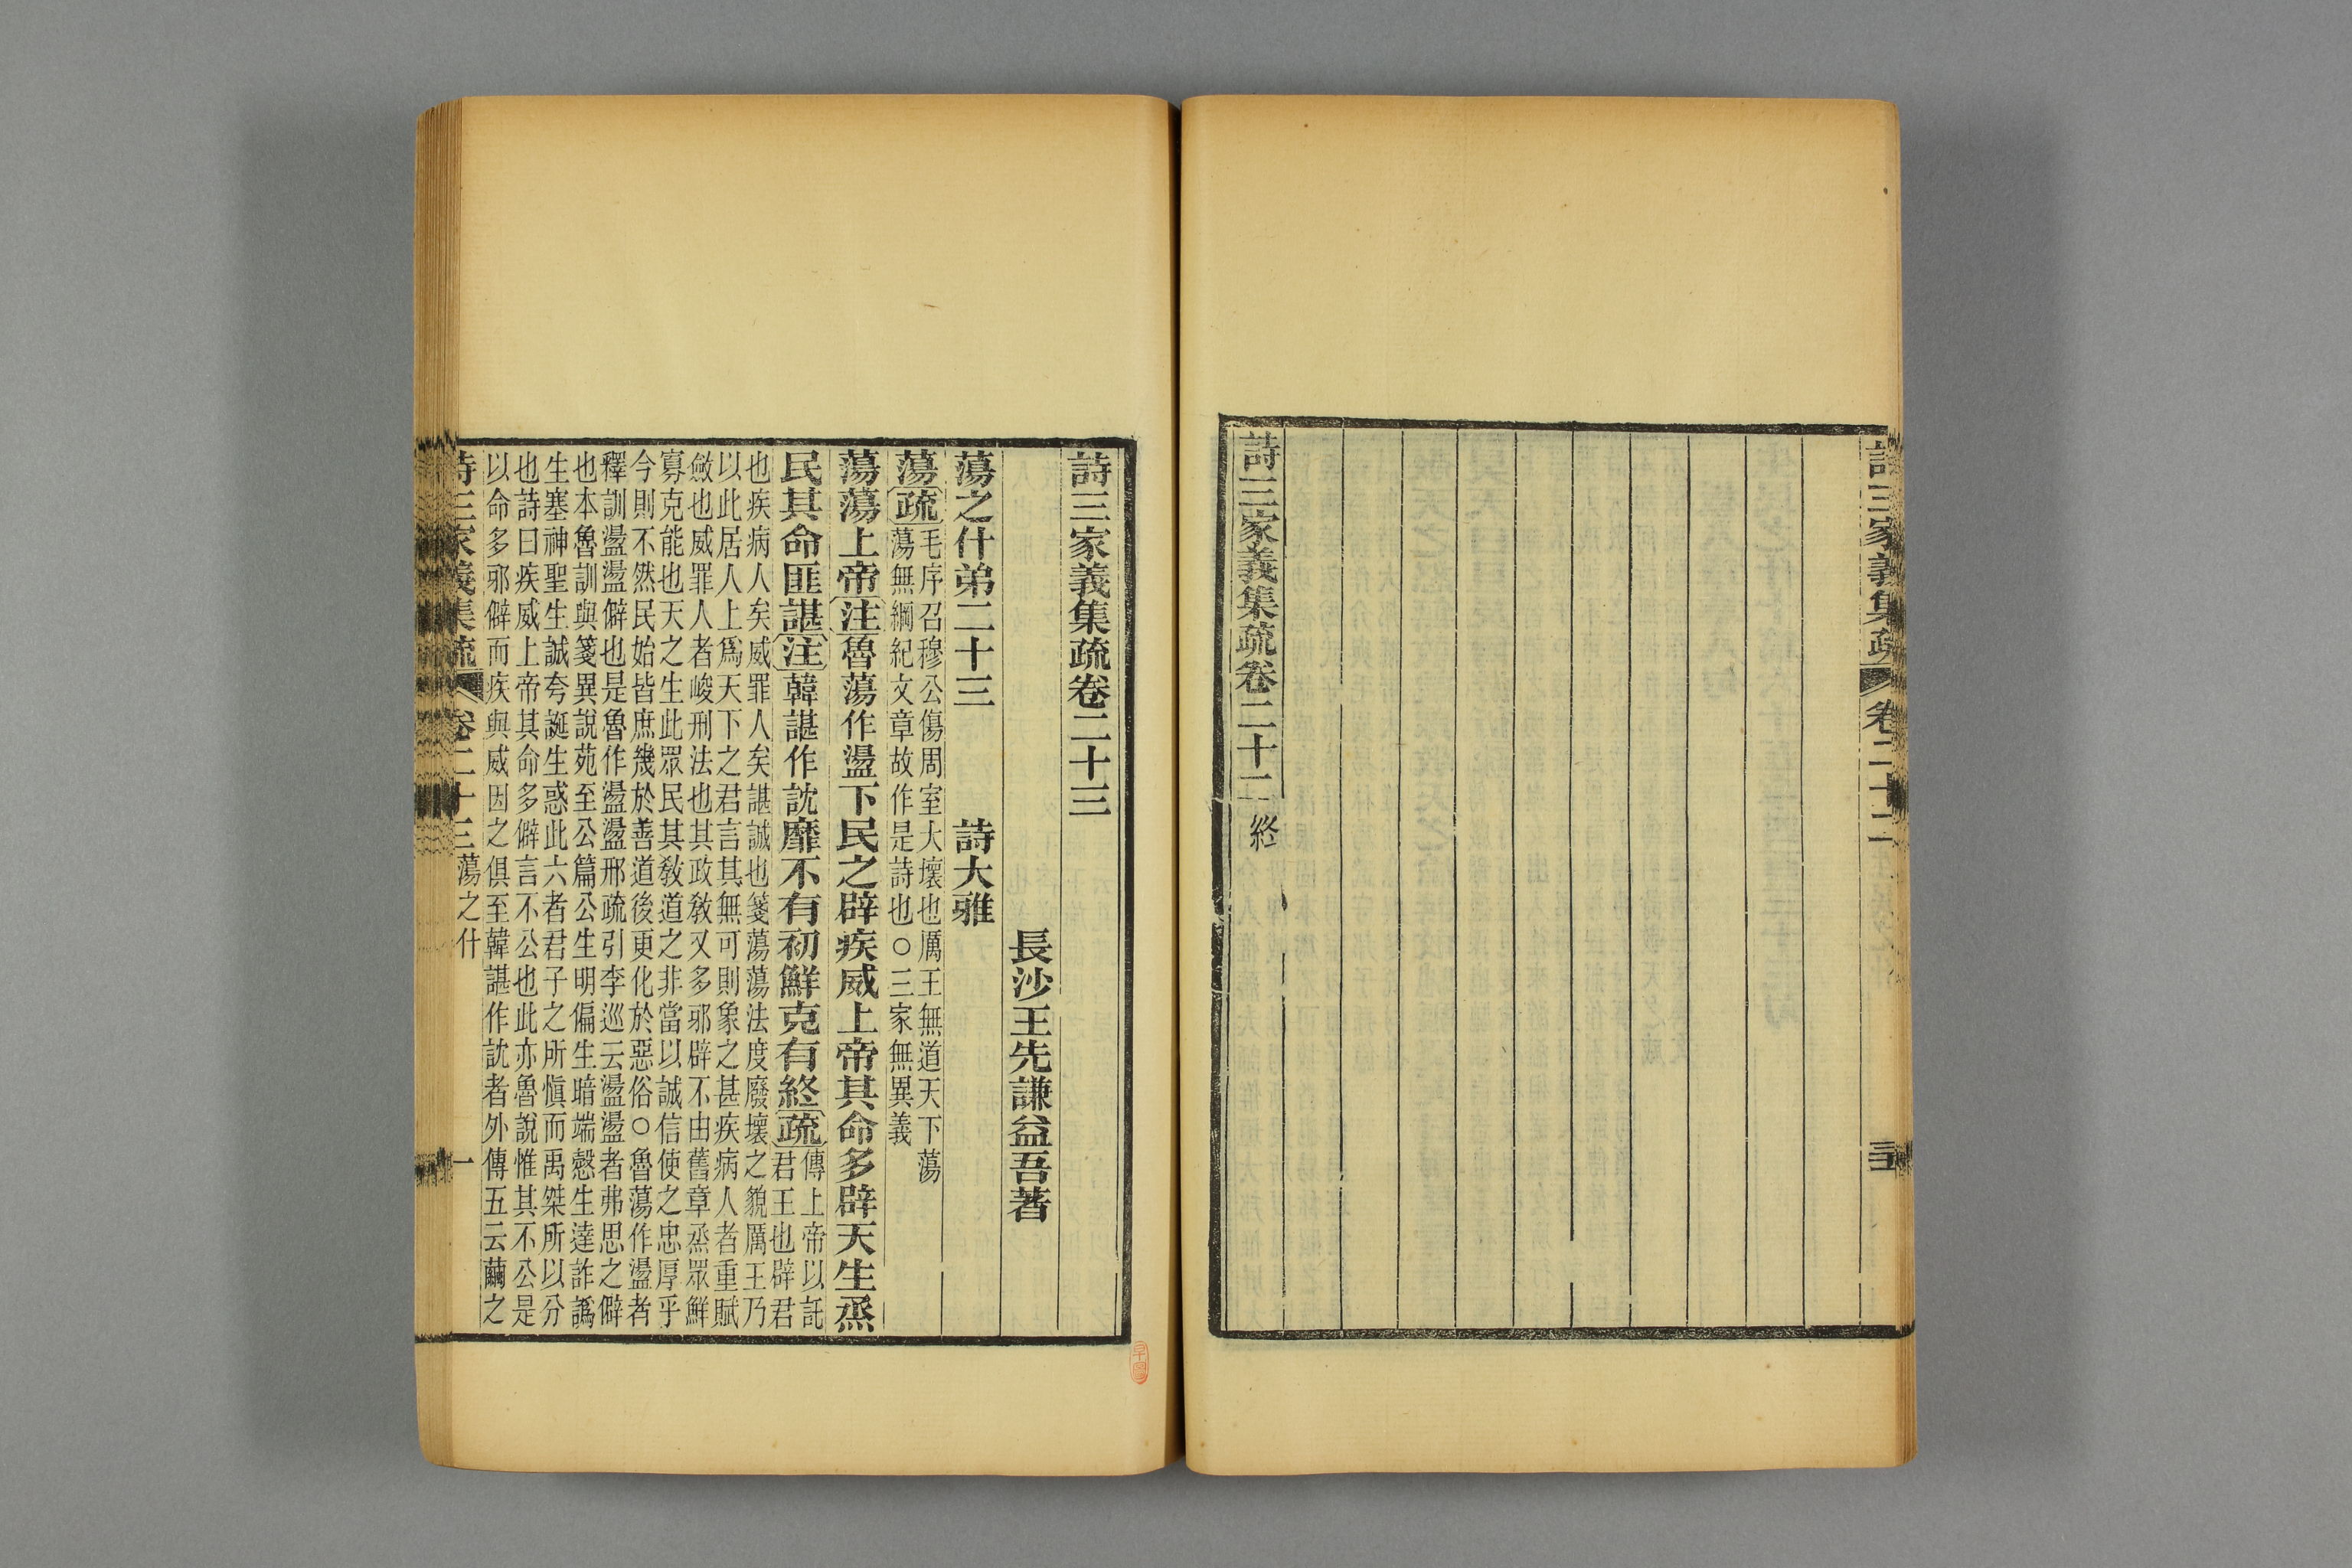 詩三家義集疏 卷二十二
詩三家義集疏卷二十二終
詩三家義集疏卷二十三
長沙王先謙益吾著
蕩之什弟二十三 詩大雅
蕩疏毛序召穆公傷周室大壞也厲王無道天下蕩
蕩無綱紀文章故作是詩也○三家無異義
蕩蕩上帝注魯蕩作盪下民之辟疾威上帝其命多辟天生烝
民其命匪諶注韓諶作訦靡不有初鮮克有終疏傳上帝以託
君王也辟君
也疾病人矣威罪人矣諶誠也箋蕩蕩法度廢壞之貌厲王乃
以此居人上爲天下之君言其無可則象之甚疾病人者重賦
斂也威罪人者峻刑法也其政教又多邪辟不由舊章烝眾鮮
寡克能也天之生此眾民其教道之非當以誠信使之忠厚乎
今則不然民始皆庶幾於善道後更化於惡俗○魯蕩作盪者
釋訓盪盪僻也是魯作盪盪邢疏引李巡云盪盪者弗思之僻
也本魯訓與箋異說苑至公篇公生明偏生暗端愨生達詐譌
生塞神聖生誠夸誕生惑此六者君子之所慎而禹桀所以分
也詩曰疾威上帝其命多僻言不公也此亦魯說惟其不公是
以命多邪僻而疾與威因之俱至韓諶作訦者外傳五云繭之
詩三家義集疏 卷二十三蕩之什 一